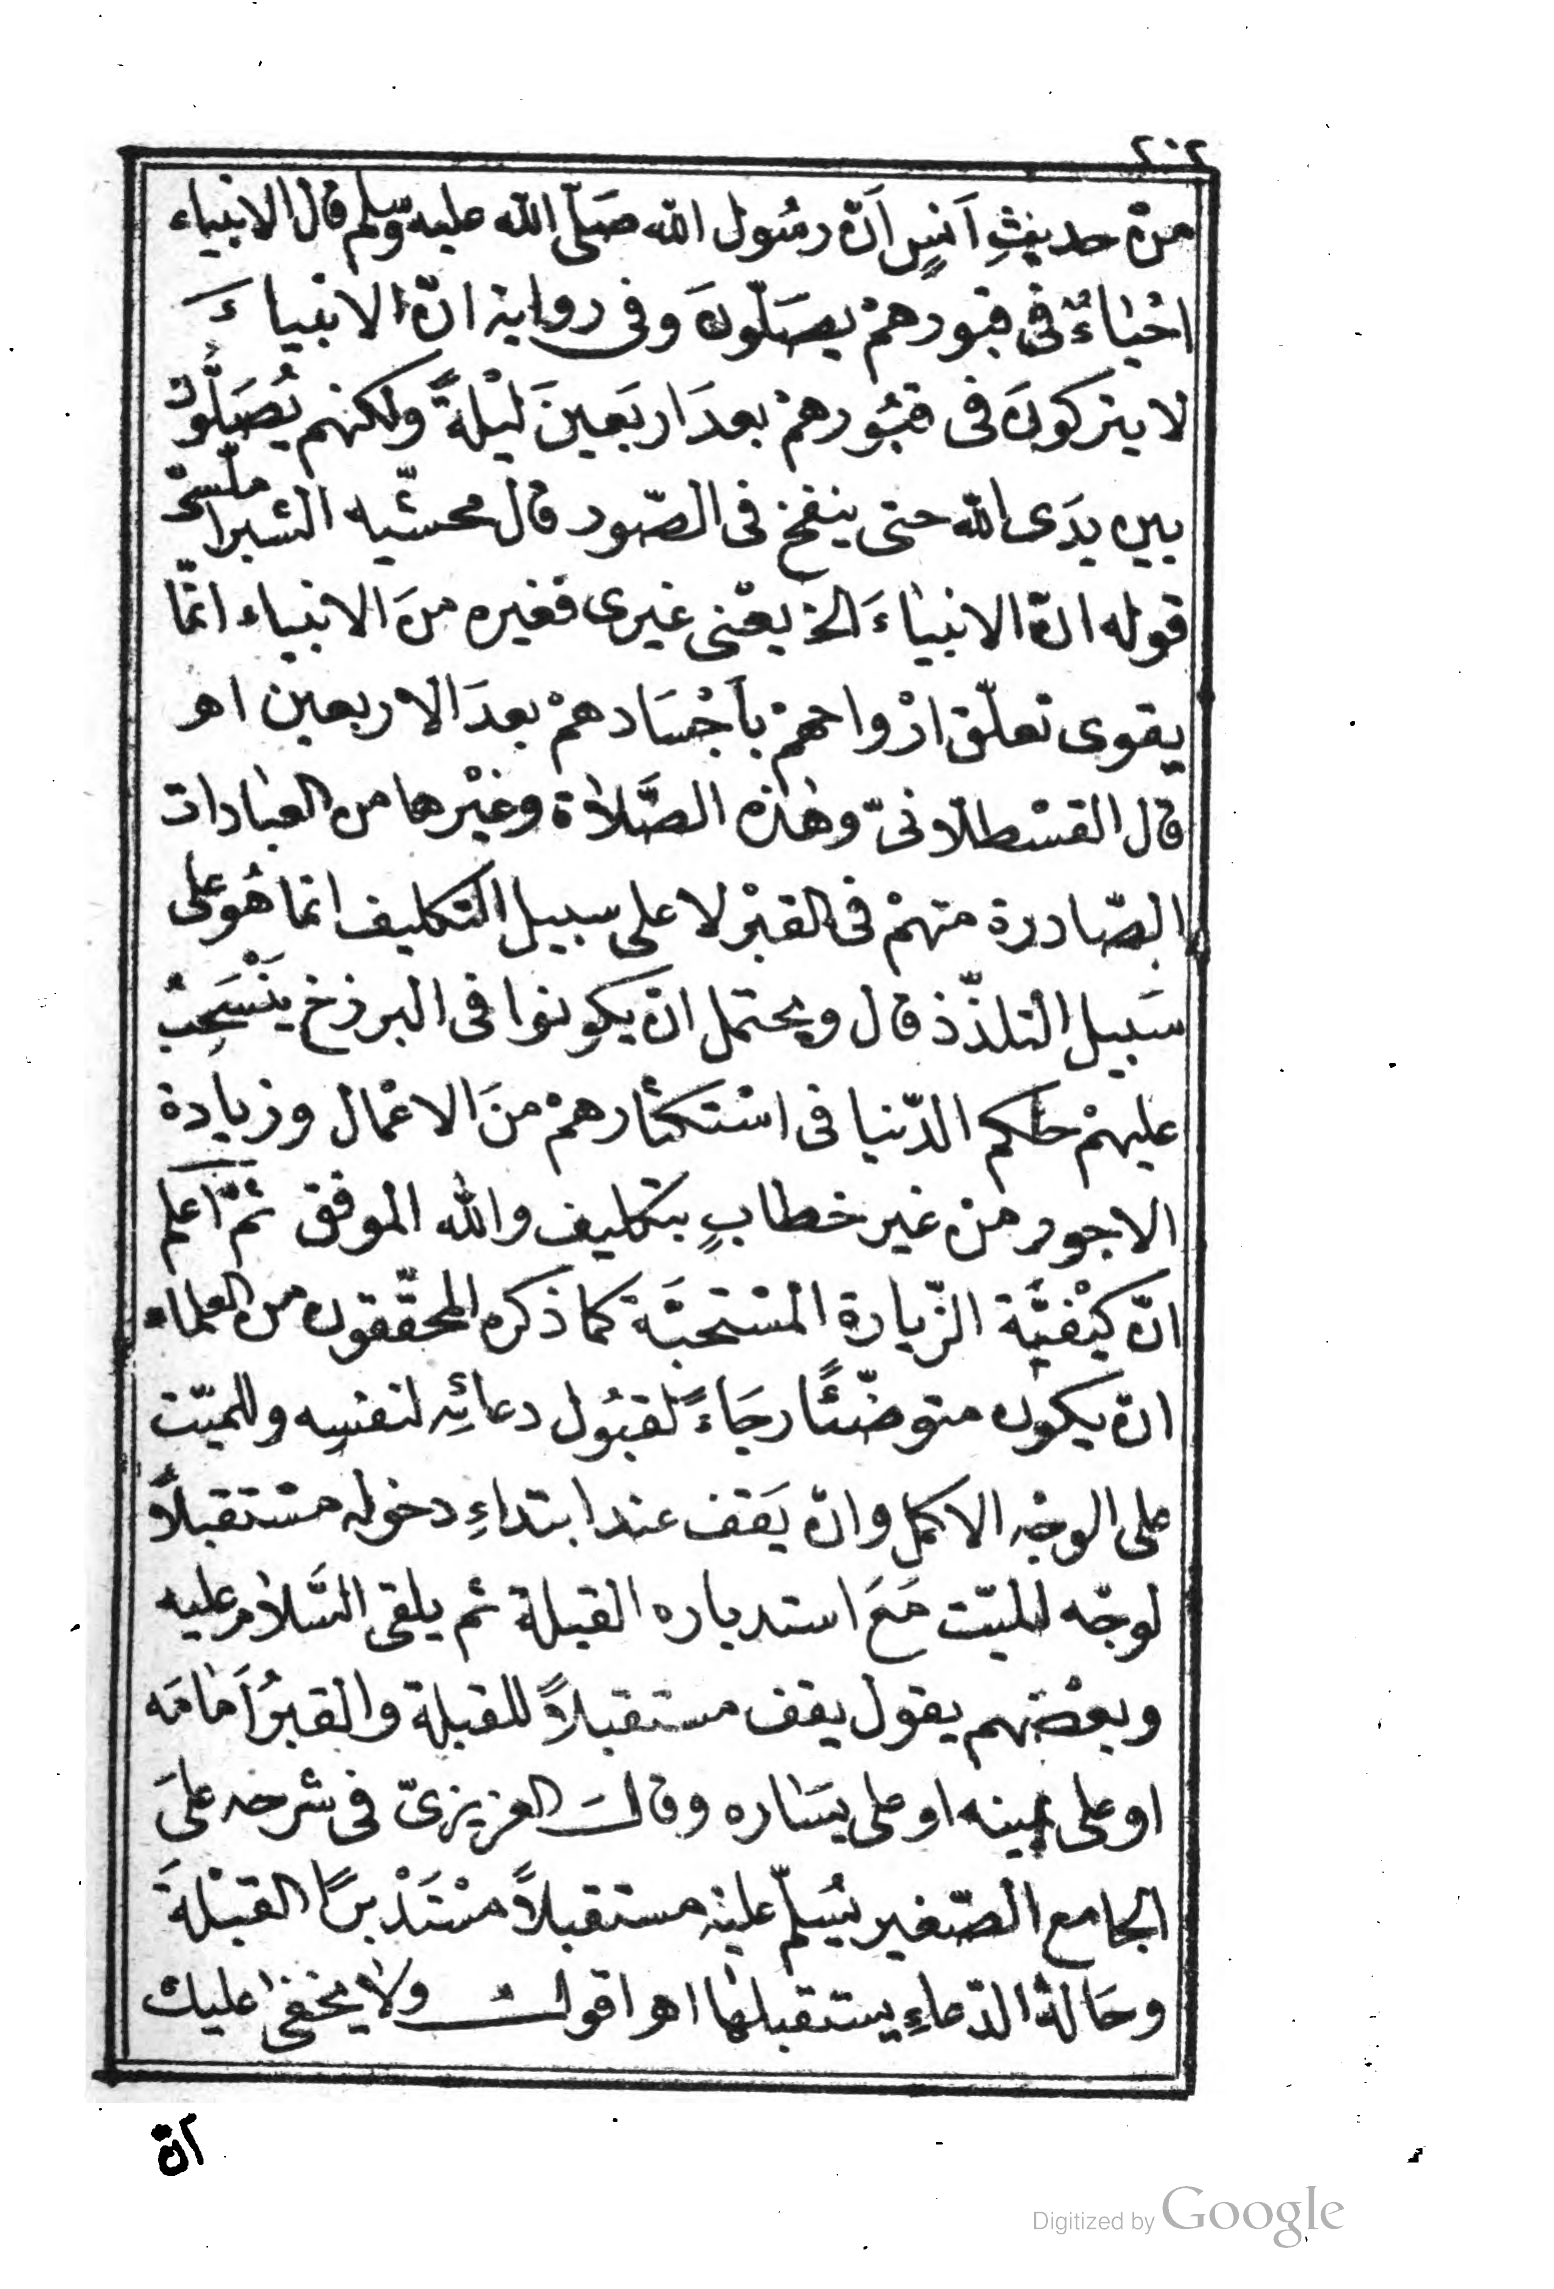 ٢٠٢
منْ حديثِ اَنسٍ اَنّ رسُول الله صَلّى الله عليه وسلم قال الانبياء
احْياءٌ فى قبورهمْ يصَلّونَ وفى رواية انّ الانبياءَ
لا يتركونَ فى قبُورهمْ بعدَ اربَعينَ ليْلةً ولكنهم يُصَلُّونَ
بين يدَى الله حتى ينفخ فى الصّور قال محشّيه الشبراملّسىّ
قوله انّ الانبياءَ الخ يعْنى غيرى فغيره منَ الانبياء انّما
يقوى تعلّق ارْواحهمْ بأجْسَادهمْ بعدَ الاربعين اهـ
قال القسْطلانىّ وهٰذه الصَّلاة وغيْرها من العبادات
الصّادرة منهمْ فى القبْر لا على سبيل التكليف انما هُو على
سَبيل التلذّذ قال ويحتمل انْ يكونوا فى البرزخ ينْسَحِبُ
عليهمْ حكم الدّنيا فى اسْتكثارهمْ منَ الاعْمال وزيادة
الاجور منْ غير خطابٍ بتكليف والله الموفق ثمّ اعلم
انّ كيْفيَّة الزّيارة المسْتحبَّة كما ذكره المحقّقون من العلماء
انْ يكون متوضّئًا رجَاءً لقبُول دعائِه لنفسِه وللميّت
على الوجْه الاكمل وانْ يَقف عند ابتداءِ دخوله مسْتقبلاً
لوجْه الميّت مَعَ استدباره القبلة ثم يلقى السَّلام عليه
وبعْضهم يقول يقف مستقبلاً للقبلة والقبرُ اَمامَه
او على يمينه او على يسَاره وقالَ العزيزىّ فى شرحه علىَ
الجامع الصّغير يُسَلّم عليْه مستقبلاً مسْتَدْبرًا القبْلةَ
وحَالة الدّعاءِ يستقبلها اهـ اقول ولا يخفى عليك
انّ
Digitized by Google